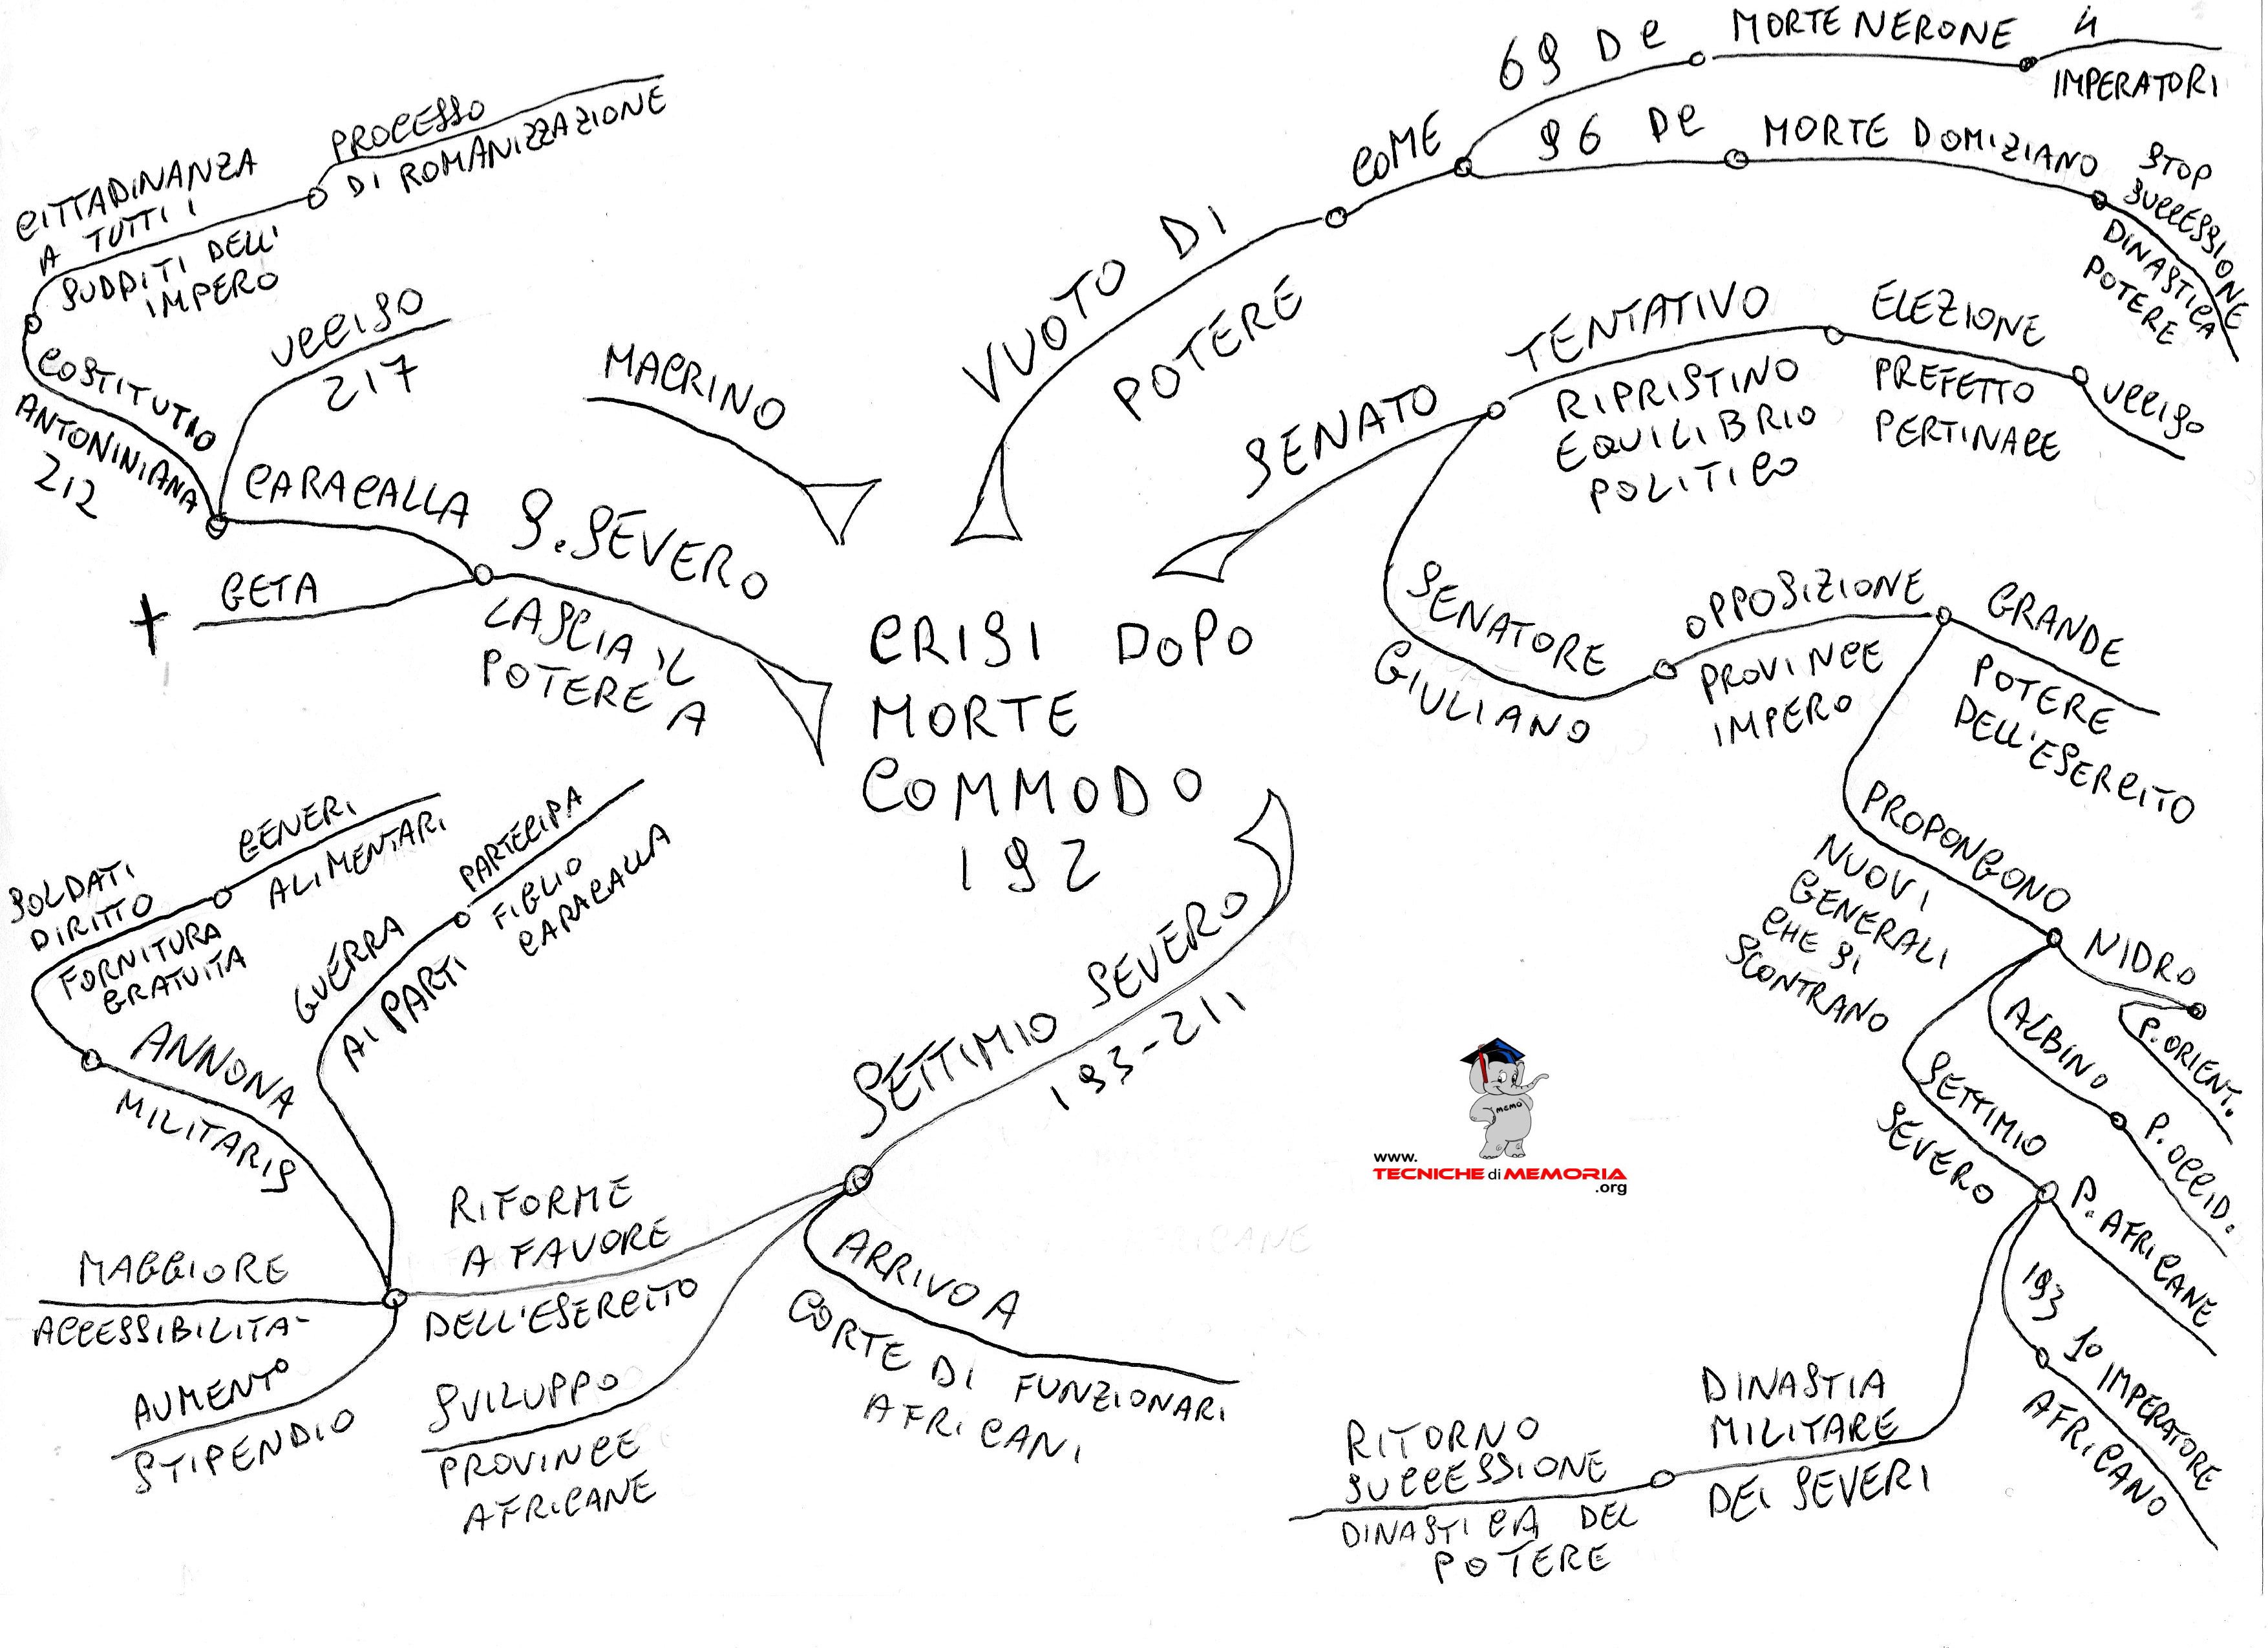 CRISI DOPO
MORTE
COMMODO
192
VUOTO DI
POTERE
COME
69 DC
MORTE NERONE
4
IMPERATORI
96 DC
MORTE DOMIZIANO
STOP
SUCCESSIONE
DINASTICA
POTERE
SENATO
TENTATIVO
RIPRISTINO
EQUILIBRIO
POLITICO
ELEZIONE
PREFETTO
PERTINACE
UCCISO
SENATORE
GIULIANO
OPPOSIZIONE
PROVINCE
IMPERO
GRANDE
POTERE
DELL'ESERCITO
PROPONGONO
NUOVI
GENERALI
CHE SI
SCONTRANO
NIDRO
P.ORIENT.
ALBINO
P.OCCID.
SETTIMIO
SEVERO
P.AFRICANE
193
1° IMPERATORE
AFRICANO
DINASTIA
MILITARE
DEI SEVERI
RITORNO
SUCCESSIONE
DINASTICA DEL
POTERE
SETTIMIO SEVERO
193-211
ARRIVO A
CORTE DI FUNZIONARI
AFRICANI
SVILUPPO
PROVINCE
AFRICANE
RIFORME
A FAVORE
DELL'ESERCITO
AUMENTO
STIPENDIO
MAGGIORE
ACCESSIBILITA'
ANNONA
MILITARIS
SOLDATI
DIRITTO
FORNITURA
GRATUITA
GENERI
ALIMENTARI
GUERRA
AI PARTI
PARTECIPA
FIGLIO
CARACALLA
S.SEVERO
LASCIA IL
POTERE A
GETA
CARACALLA
UCCISO
217
COSTITUTIO
ANTONINIANA
212
CITTADINANZA
A TUTTI I
SUDDITI DELL'
IMPERO
PROCESSO
DI ROMANIZZAZIONE
MACRINO
MEMO
www.
TECNICHE di MEMORIA
.org